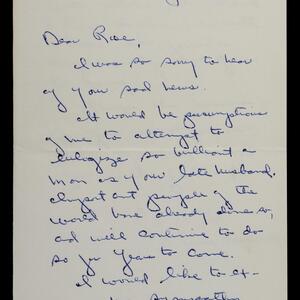 Dear Rae,
I was so sorry to hear
of your sad news.
It would be presumptious
of me to attempt to
eulogize so brilliant a
man as your late husband.
Important people of the
world have already done so,
and will continue to do
so for years to come.
I would like to ex-
sympathy